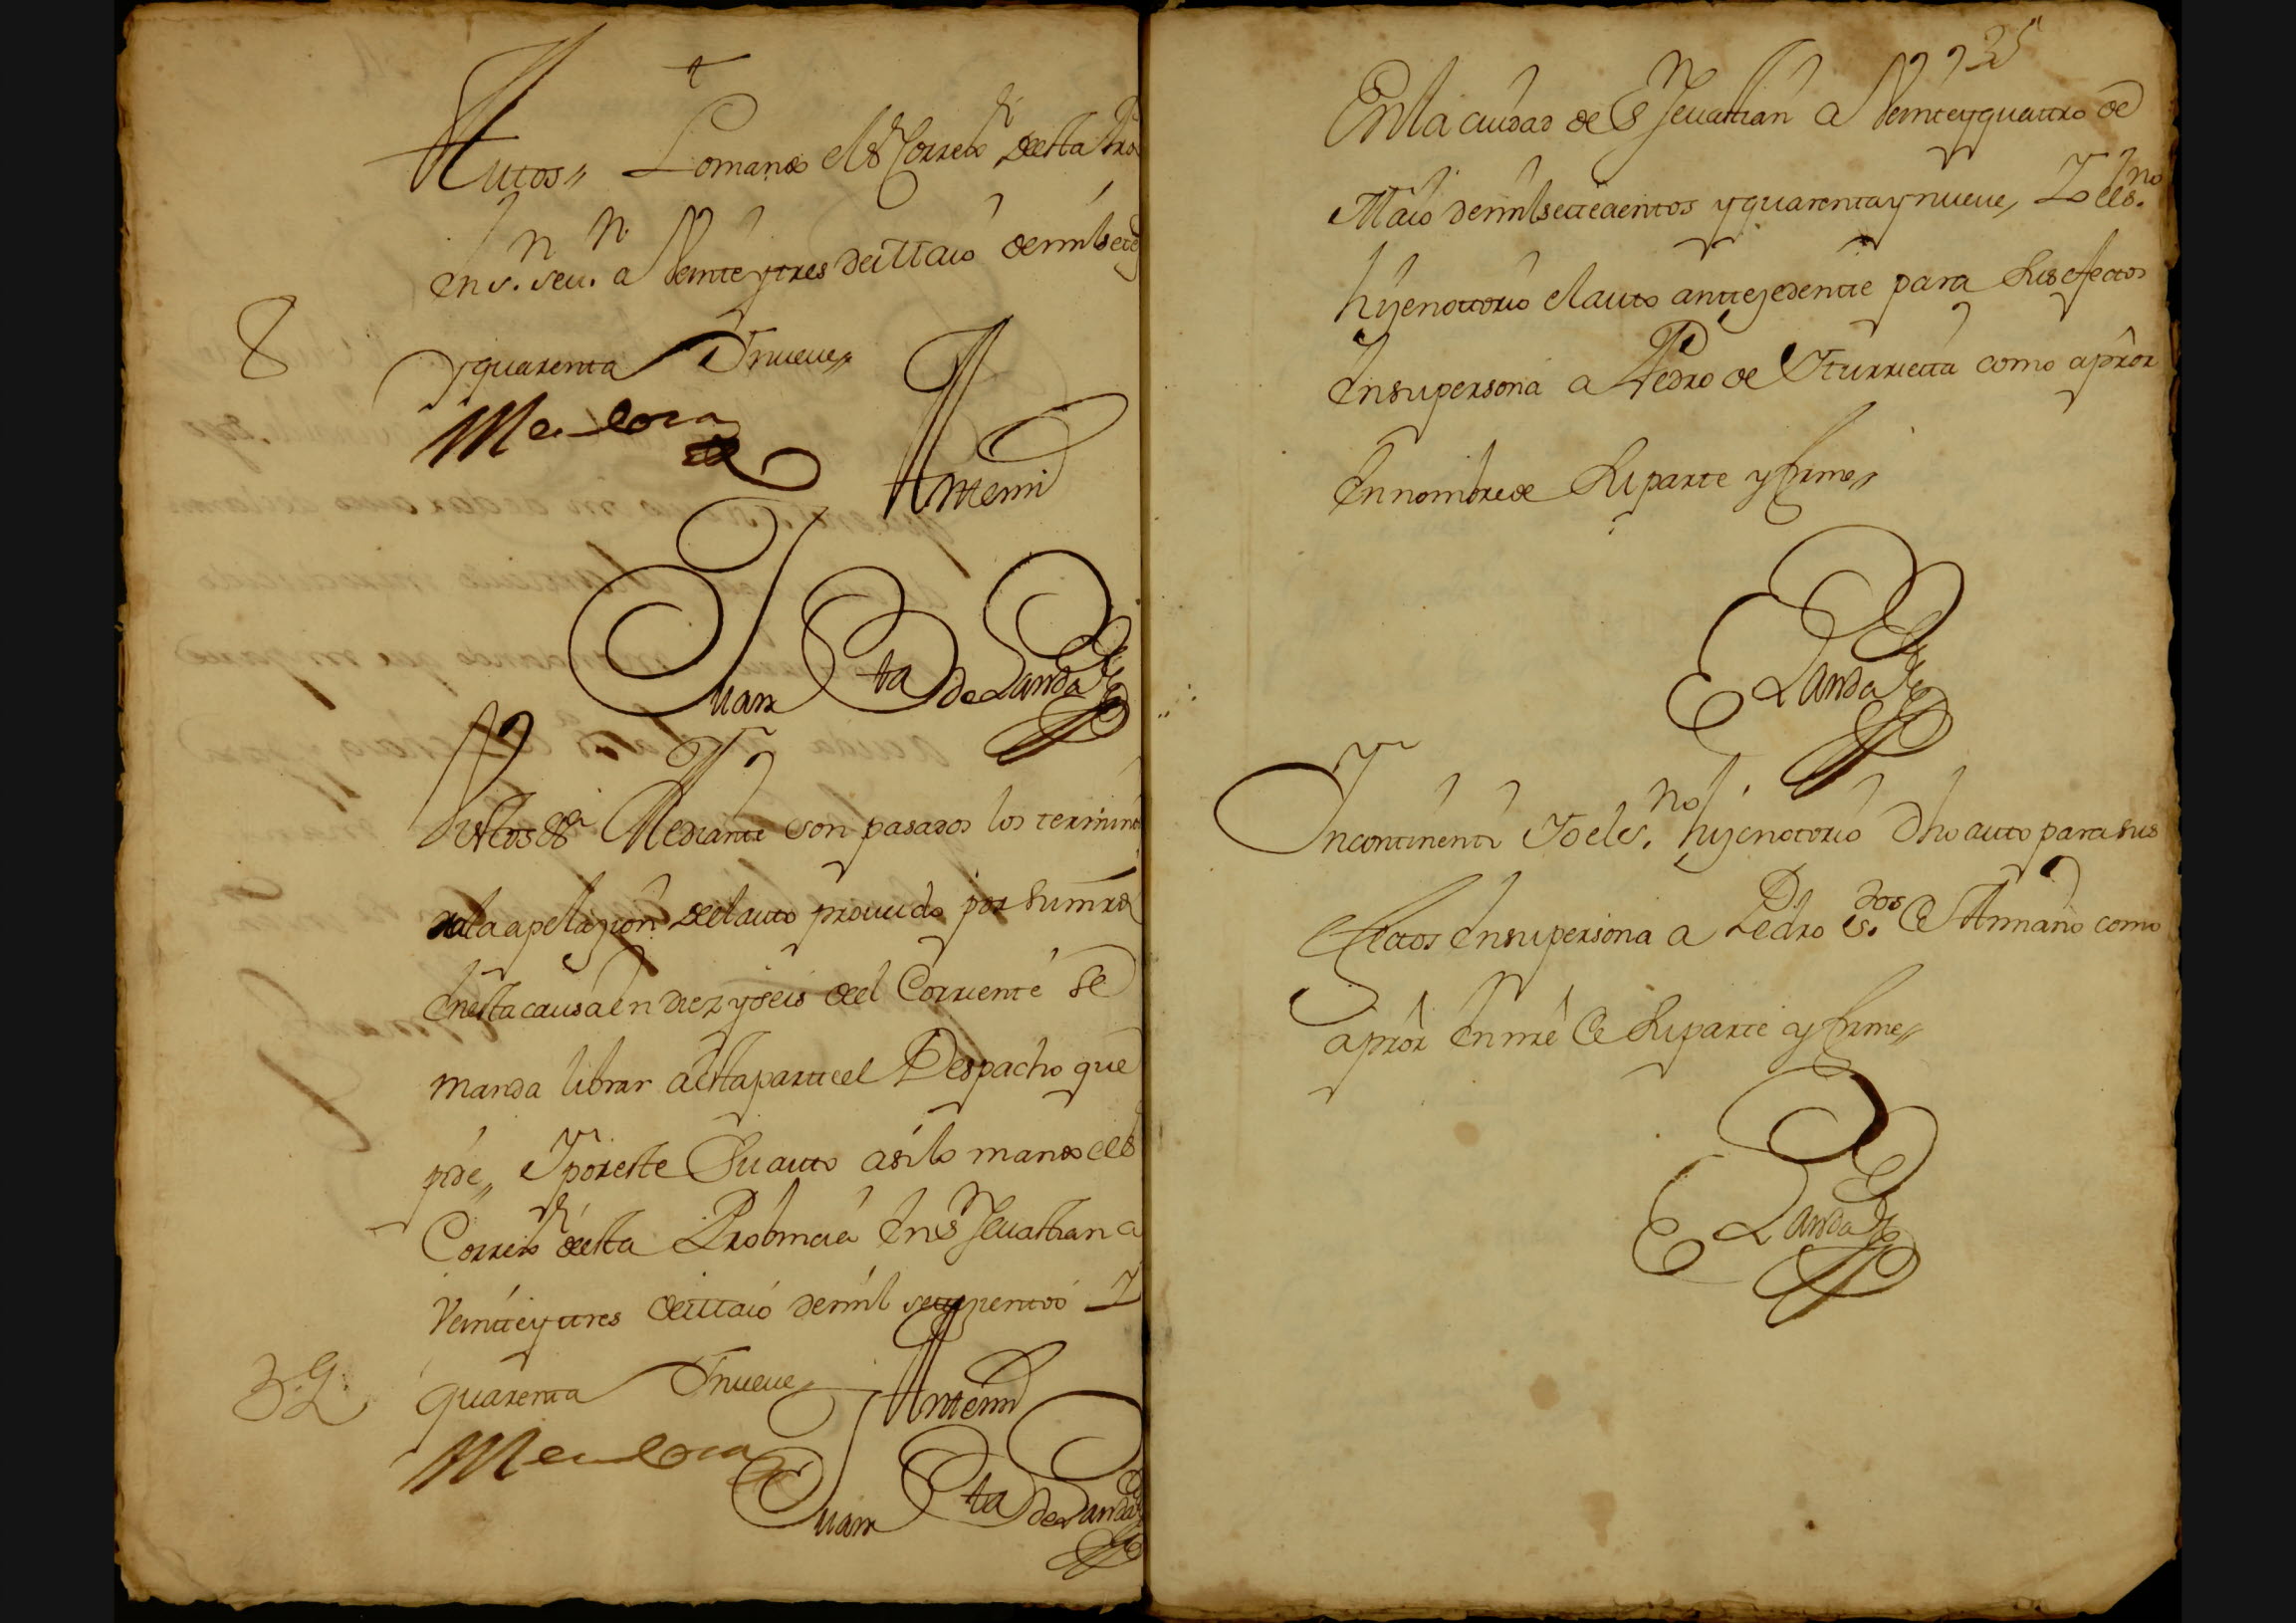 Autos,, Lo mando el S.r Correx.r de esta Pro
en S.n Seu.n a Veinte y tres de Maio de mil sete
8
y quarenta Y nueve,,
Mendoza
Ante mi
Juan Bta de Landa
Vistos &a Mediante son pasados los termino
de la apelazion de el auto proueido por su mrd
en esta causa en diez y seis de el Corriente se
manda librar a esta parte el Despacho que
pide,, Y por este su auto asi lo mando el S
Correx.r de esta Probincia en S.n Seuastian a
Veinte y tres de Maio de mil setezientos Y
quarenta Y nueve,
Ante mi
Mendoza
Juan Bta de Landa
35
En la ciudad de S.n Seuastian a Veinte y quattro de
Maio de mil settecientos y quarenta y nueve, Yo el es.no
hize nottorio el auto antezedente para sus efectos
en su persona a Pedro de Yturrietta como apror
en nombre de su parte y firme,,
Landa
Yncontinenti Yo el es.no hize notorio dho auto para sus
efectos en su persona a Pedro S.dos de Amano como
apror en nre de su parte y firme,,
Landa